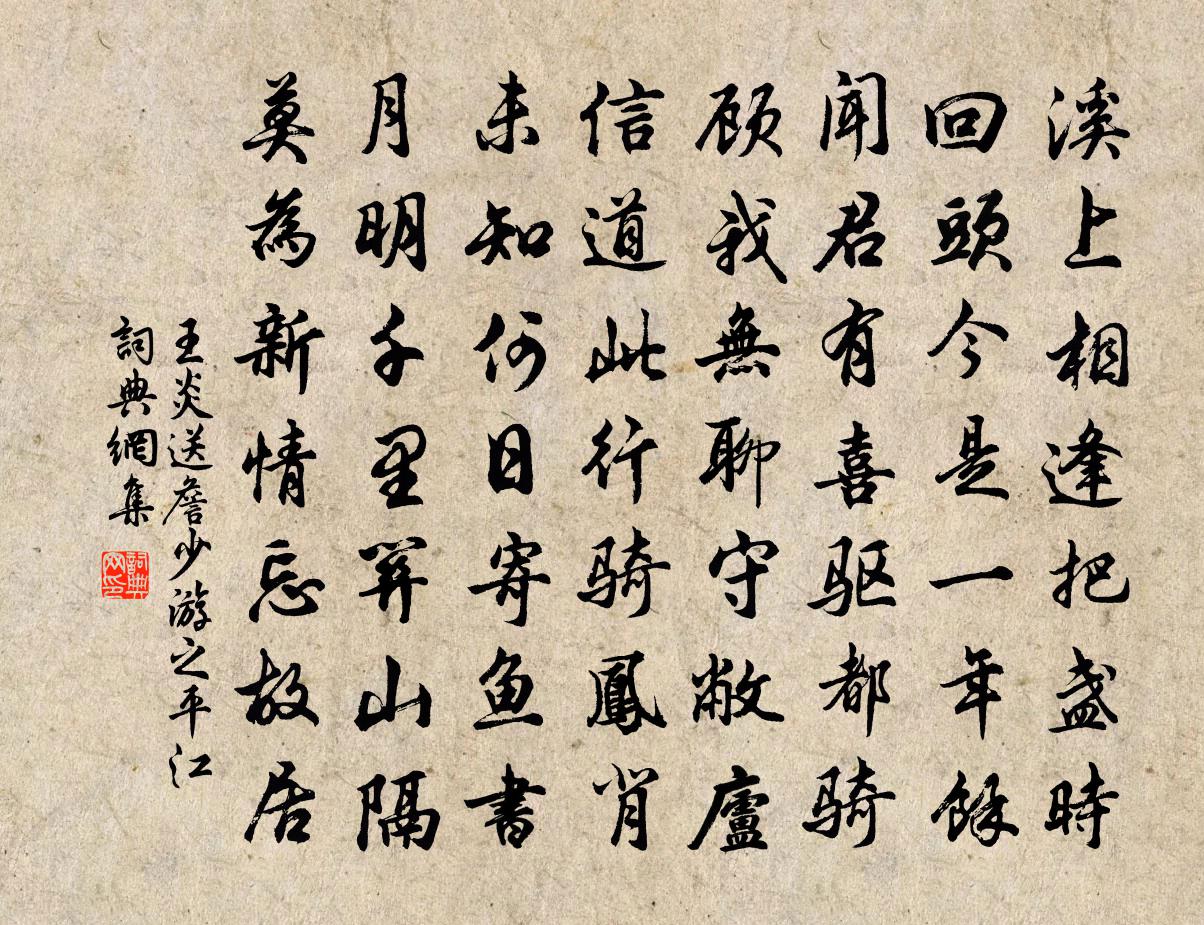 溪上相逢把盏時
回頭今是一年餘
闻君有喜驱都骑
顾我無聊守敝廬
信道此行骑鳳肖
未知何日寄鱼書
月明千里關山隔
莫為新情忘故居
王炎送詹少游之平江
詞典網集
詞典网印